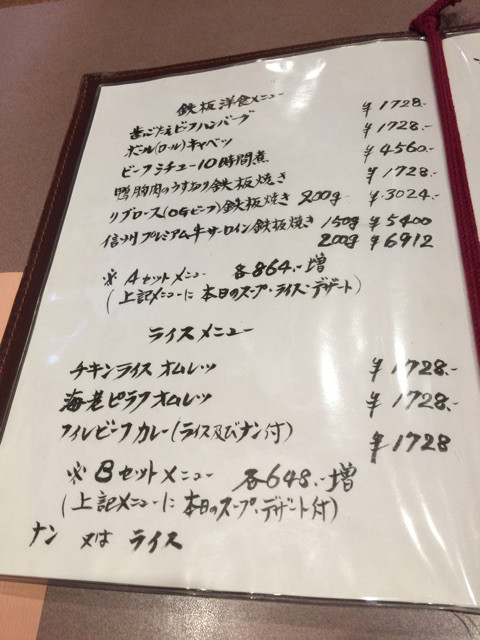 鉄板洋食メニュー
歯ごたえビーフハンバーグ ¥1728.-
ボール(ロール)キャベツ ¥1728.-
ビーフシチュー10時間煮 ¥4560.-
鴨胸肉のうす切り鉄板焼き ¥1728.-
リブロース(OGビーフ)鉄板焼き 200g ¥3024.-
信州プレミアム牛サーロイン鉄板焼き 150g ¥5400
200g ¥6912
※Aセットメニュー 各864.-増
(上記メニューに本日のスープ・ライス・デザート)
ライスメニュー
チキンライスオムレツ ¥1728.-
海老ピラフオムレツ ¥1728.-
フィレビーフカレー(ライス及びナン付) ¥1728
※Bセットメニュー 各648.-増
(上記メニューに本日のスープ・デザート付)
ナン 又は ライス